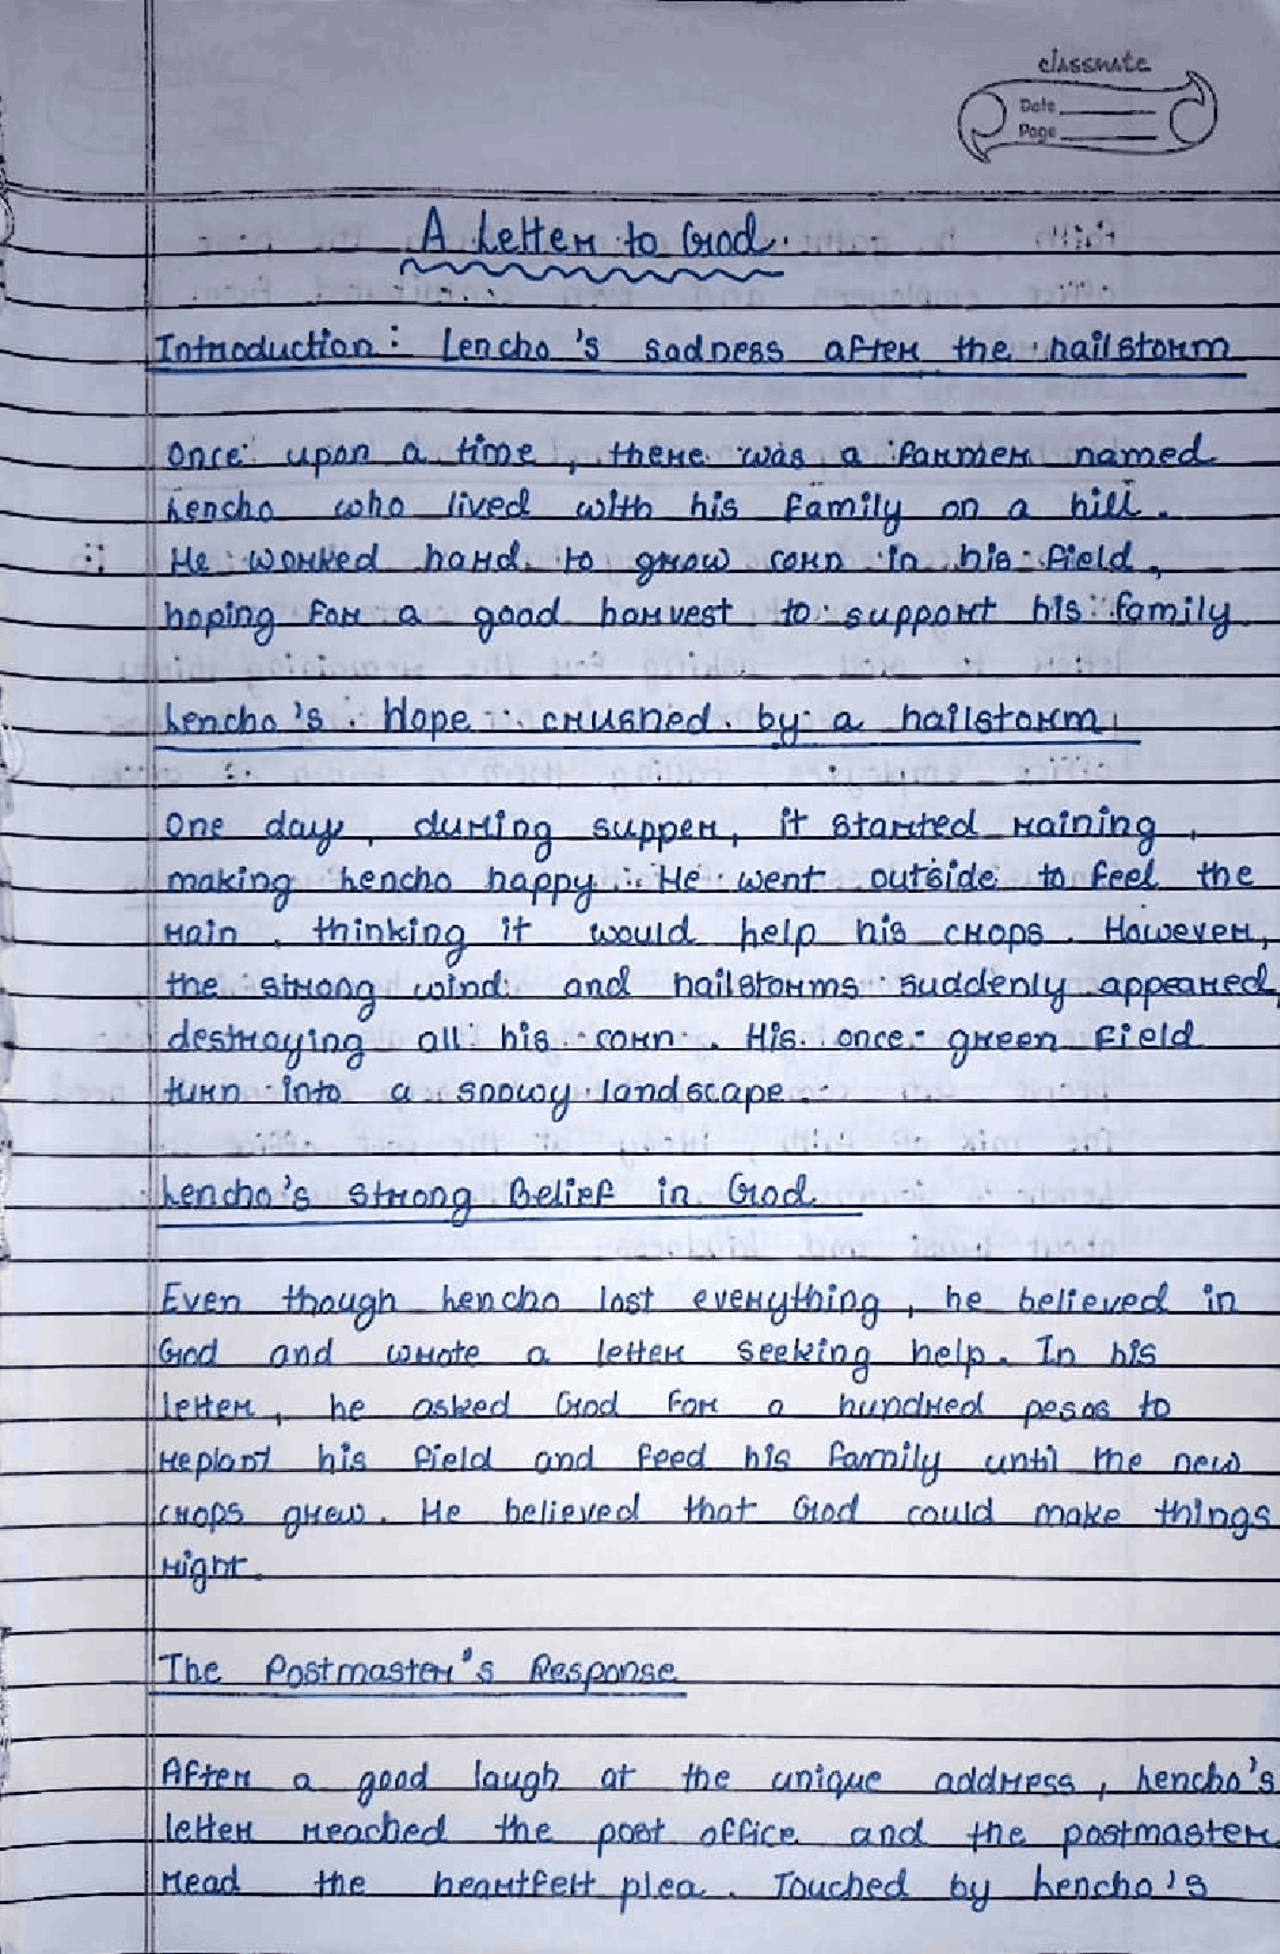 classmate
Date
Page
A Letter to God.
Introduction: Lencho's sadness after the hailstorm
Once upon a time, there was a farmer named
Lencho who lived with his family on a hill.
He worked hard to grow corn in his field,
hoping for a good harvest to support his family.
Lencho's Hope crushed by a hailstorm
One day, during supper, it started raining,
making Lencho happy. He went outside to feel the
rain, thinking it would help his crops. However,
the strong wind and hailstorms suddenly appeared,
destroying all his corn. His once green field
turn into a snowy landscape.
Lencho's strong Belief in God
Even though Lencho lost everything, he believed in
God and wrote a letter seeking help. In his
letter, he asked God for a hundred pesos to
replant his field and feed his family until the new
crops grew. He believed that God could make things
right.
The Postmaster's Response
After a good laugh at the unique address, Lencho's
letter reached the post office and the postmaster
read the heartfelt plea. Touched by Lencho's